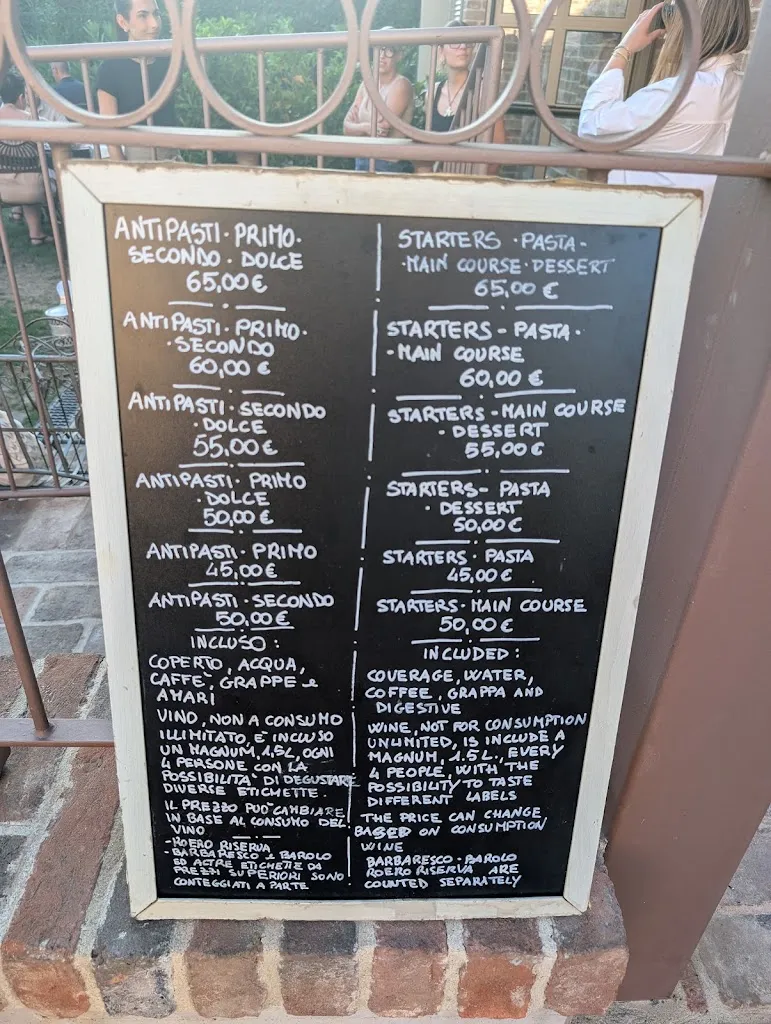 ANTIPASTI · PRIMO ·
SECONDO · DOLCE
65,00 €
ANTIPASTI · PRIMO ·
· SECONDO
60,00 €
ANTIPASTI · SECONDO
· DOLCE
55,00 €
ANTIPASTI · PRIMO
· DOLCE
50,00 €
ANTIPASTI · PRIMO
45,00 €
ANTIPASTI · SECONDO
50,00 €
INCLUSO :
COPERTO, ACQUA,
CAFFE', GRAPPE e
AMARI
VINO, NON A CONSUMO
ILLIMITATO, E' INCLUSO
UN MAGNUM, 1,5 L, OGNI
4 PERSONE CON LA
POSSIBILITA' DI DEGUSTARE
DIVERSE ETICHETTE.
IL PREZZO PUO' CAMBIARE
IN BASE AL CONSUMO DEL
VINO
- ROERO RISERVA
- BARBARESCO e BAROLO
ED ALTRE ETICHETTE DA
PREZZI SUPERIORI SONO
CONTEGGIATI A PARTE
STARTERS · PASTA -
· MAIN COURSE · DESSERT
65,00 €
STARTERS - PASTA ·
· MAIN COURSE
60,00 €
STARTERS - MAIN COURSE
· DESSERT
55,00 €
STARTERS - PASTA
· DESSERT
50,00 €
STARTERS · PASTA
45,00 €
STARTERS · MAIN COURSE
50,00 €
INCLUDED :
COVERAGE, WATER,
COFFEE, GRAPPA AND
DIGESTIVE
WINE, NOT FOR CONSUMPTION
UNLIMITED, IS INCLUDE A
MAGNUM, 1.5 L., EVERY
4 PEOPLE, WITH THE
POSSIBILITY TO TASTE
DIFFERENT LABELS
THE PRICE CAN CHANGE,
BASED ON CONSUMPTION
WINE
BARBARESCO · BAROLO
ROERO RISERVA ARE
COUNTED SEPARATELY